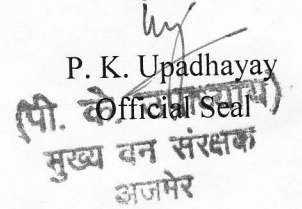 P. K. Upadhayay
Official Seal
(पी. के. उपाध्याय)
मुख्य वन संरक्षक
अजमेर